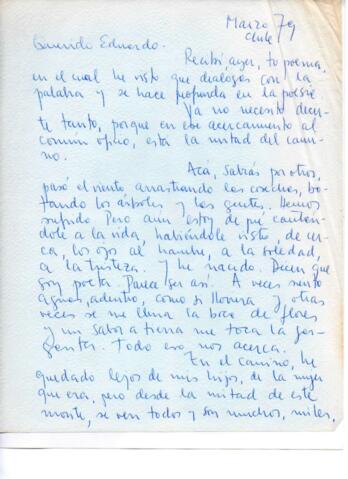 Marzo 79
Chile
Querido Eduardo.
Recibí, ayer, tu poema,
en el cual he visto que dialogas con la
palabra y se hace profunda en la poesía
Ya no necesito decir-
te tanto, porque en ese acercamiento al
común oficio, está la mitad del cami-
no.
Acá, sabrás por otros,
pasó el viento, arrastrando las cosechas, bo-
tando los árboles y las gentes. Hemos
sufrido Pero aun estoy de pié cantan-
dole a la vida, habiéndole visto, de cer-
ca, los ojos al hambre, a la soledad,
a la tristeza. Y he nacido. Dicen que
soy poeta. Parece ser así. A veces siento
aguas, adentro, como si lloviera y otras
veces se me llena la boca de flores
y un sabor a tierra me toca la gar-
ganta. Todo eso nos acerca.
En el camino, he
quedado lejos de mis hijos, de la mujer
que era, pero desde la mitad de este
monte, se ven todos y son muchos, miles,